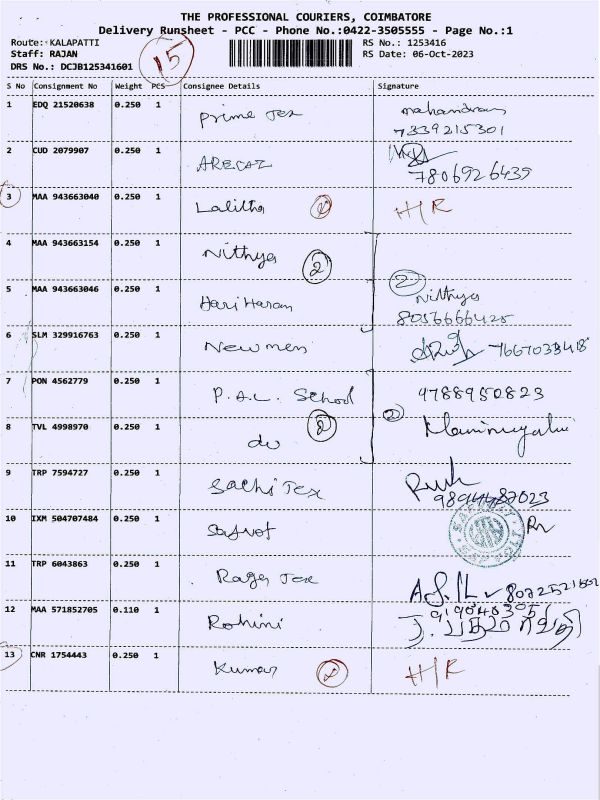 THE PROFESSIONAL COURIERS, COIMBATORE
Delivery Runsheet - PCC - Phone No.:0422-3505555 - Page No.:1
Route: KALAPATTI RS No.: 1253416
Staff: RAJAN 15 RS Date: 06-Oct-2023
DRS No.: DCJB125341601
S No Consignment No Weight PCS Consignee Details Signature
1 EDQ 21520638 0.250 1 Prime Tex mahandran
7339215301
2 CUD 2079907 0.250 1
7806926439
3 MAA 943663040 0.250 1 Lalitha H/R
4 MAA 943663154 0.250 1 Nithya 2
2
5 MAA 943663046 0.250 1 Hari Haran Nithya
8056666425
6 SLM 329916763 0.250 1 New men 7667033418
7 PON 4562779 0.250 1 P.A.L. School 9788950823
2
8 TVL 4998970 0.250 1 do 2
9 TRP 7594727 0.250 1 Sachi Tex
10 IXM 504707484 0.250 1
11 TRP 6043863 0.250 1 Raga Tex
12 MAA 571852705 0.110 1 Rohini
13 CNR 1754443 0.250 1 Kumar H/R